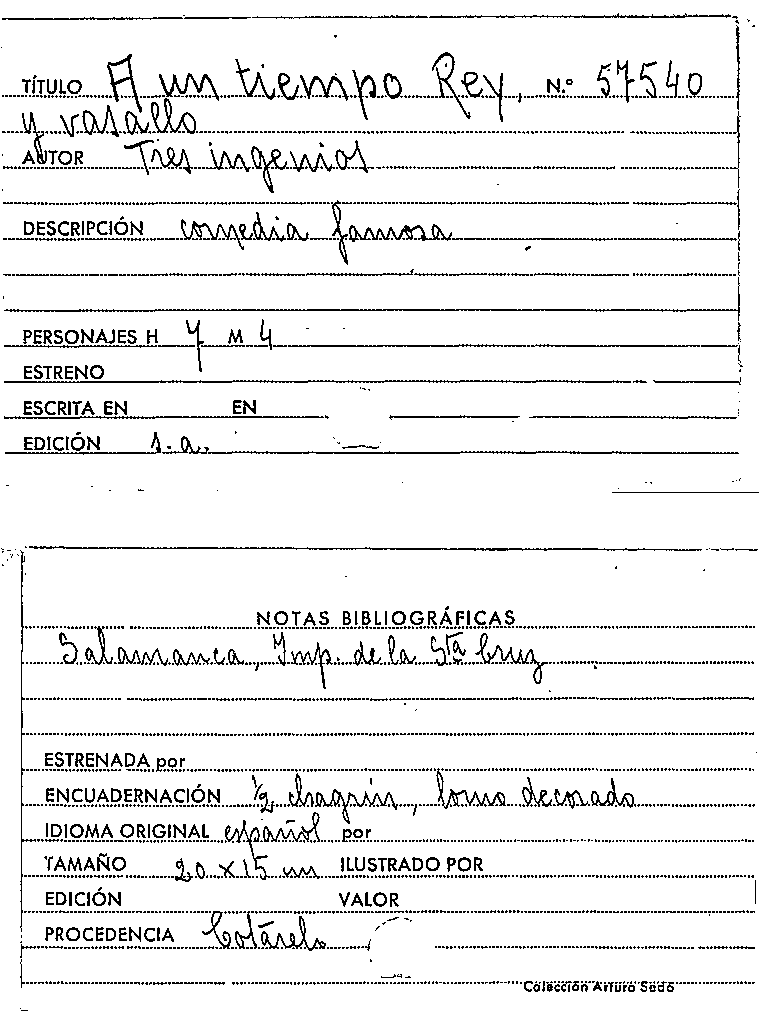 TÍTULO A un tiempo Rey, N.º 57540
y vasallo
AUTOR Tres ingenios
DESCRIPCIÓN comedia famosa
PERSONAJES H 7 M 4
ESTRENO
ESCRITA EN EN
EDICIÓN s.a.
NOTAS BIBLIOGRÁFICAS
Salamanca, Imp. de la Sta Cruz
ESTRENADA por
ENCUADERNACIÓN ½ chagrín, lomo decorado
IDIOMA ORIGINAL español por
TAMAÑO 20 x 15 cm ILUSTRADO POR
EDICIÓN VALOR
PROCEDENCIA Cotarelo
Colección Arturo Sedó